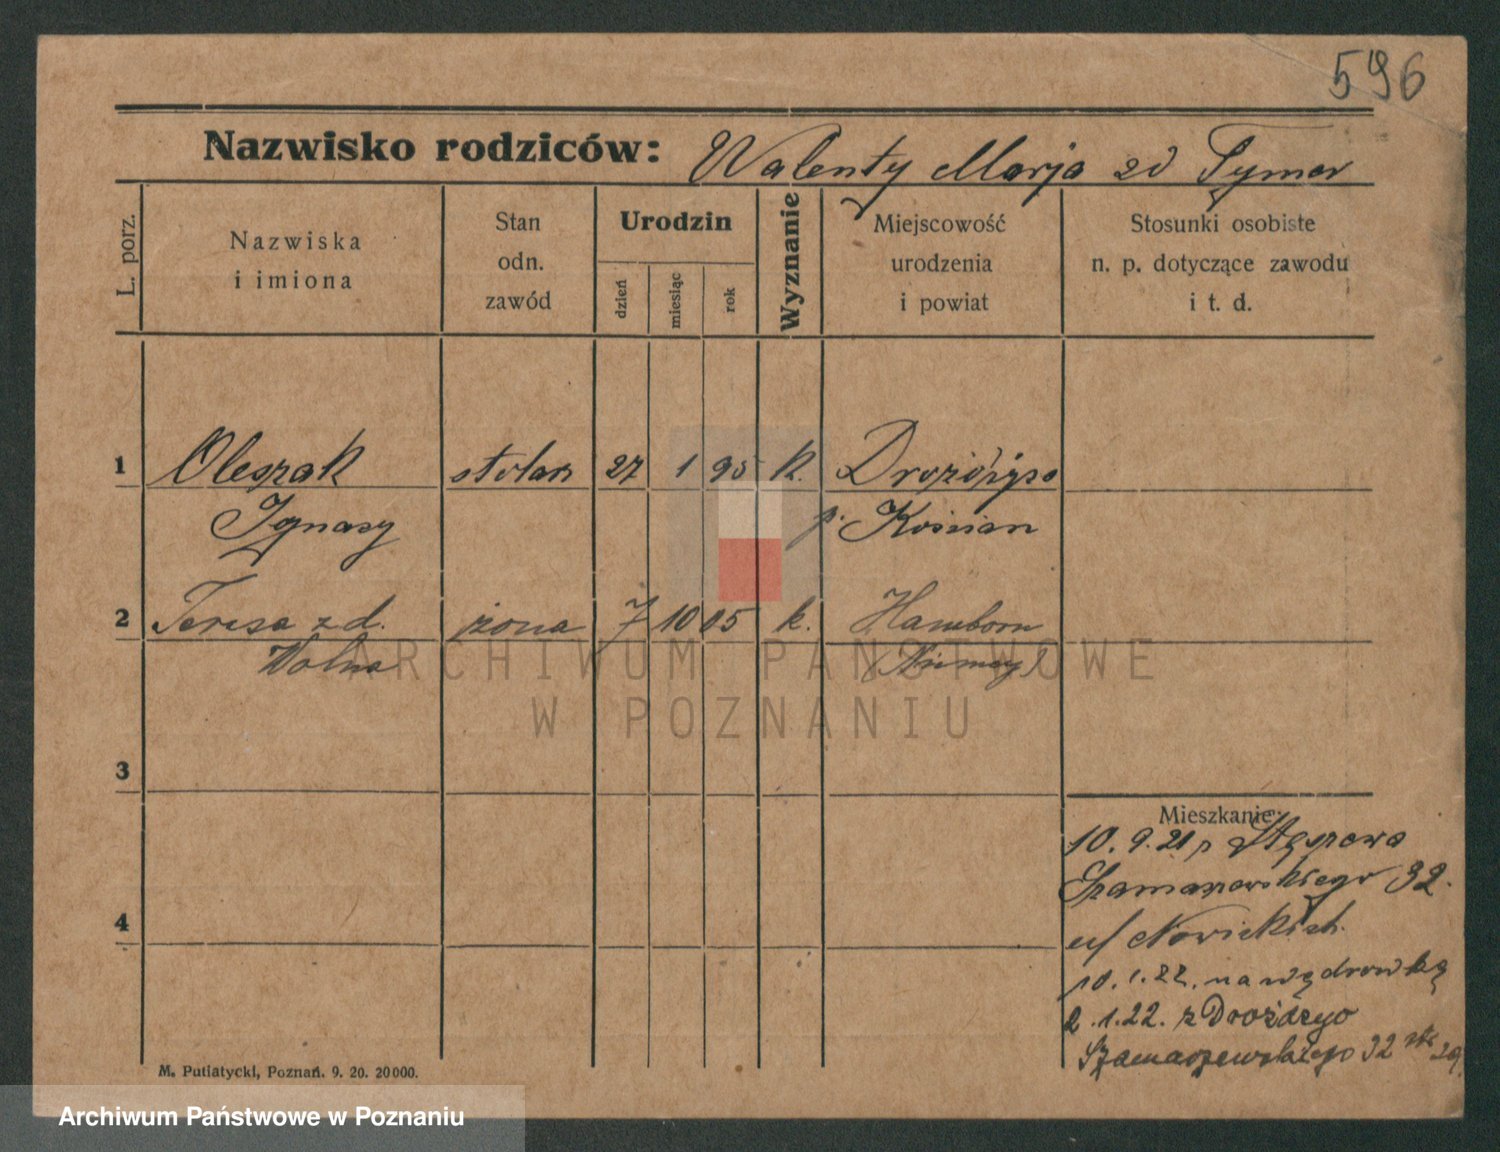 596
Nazwisko rodziców: Walenty Marja zd Tymer
L. porz.
Nazwiska
i imiona
Stan
odn.
zawód
Urodzin
dzień
miesiąc
rok
Wyznanie
Miejscowość
urodzenia
i powiat
Stosunki osobiste
n. p. dotyczące zawodu
i t. d.
1 Oleszak stolarz 27 1 95 k.
Ignacy p. Kościan
2 Teresa z d. żona 7 10 05 k. Hamborn
Wolna (Niemcy)
3
4
Mieszkanie:
10. 9. 21 z Stęszewa
Szamarzewskiego 32.
u/ Nowickich
10. 1. 22. na wędrówkę
2. 1. 22. z Drożdżyc
Szamarzewskiego 32
M. Putiatycki, Poznań. 9. 20. 20000.
ARCHIWUM PAŃSTWOWE
W POZNANIU
Archiwum Państwowe w Poznaniu